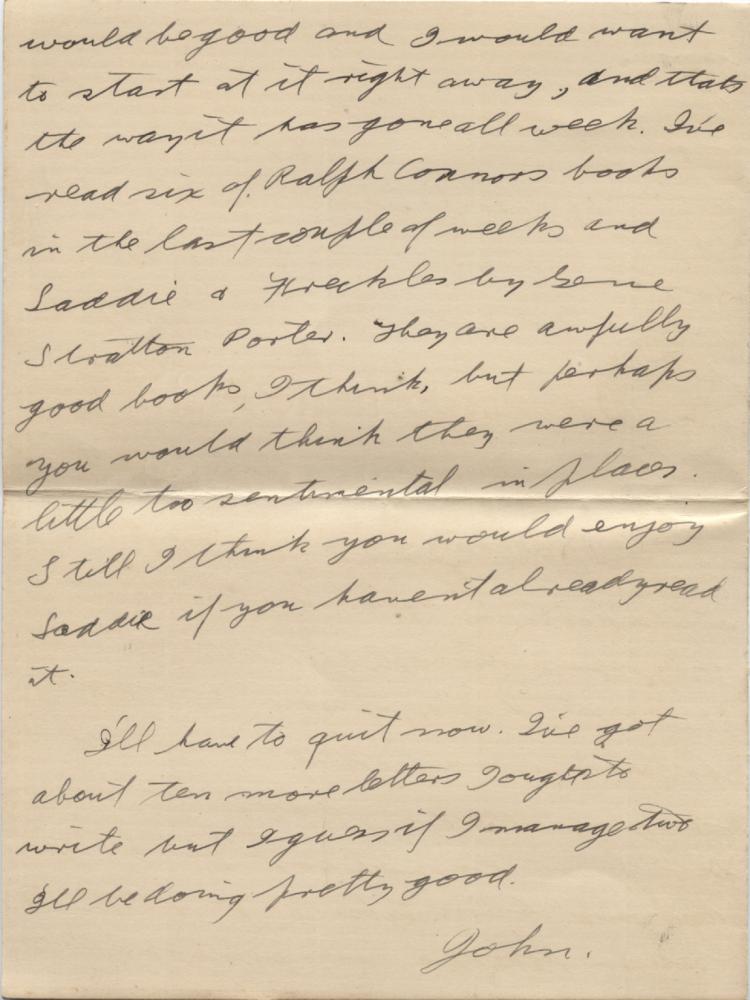 would be good and I would want
to start at it right away, and thats
the way it has gone all week. I've
read six of Ralph Connors books
in the last couple of weeks and
Laddie & Freckles by Gene
Stratton Porter. They are awfully
good books, I think, but perhaps
you would think they were a
little too sentimental in places.
Still I think you would enjoy
Laddie if you haven't already read
it.
I'll have to quit now. I've got
about ten more letters I ought to
write but I guess if I manage two
I'll be doing pretty good.
John.